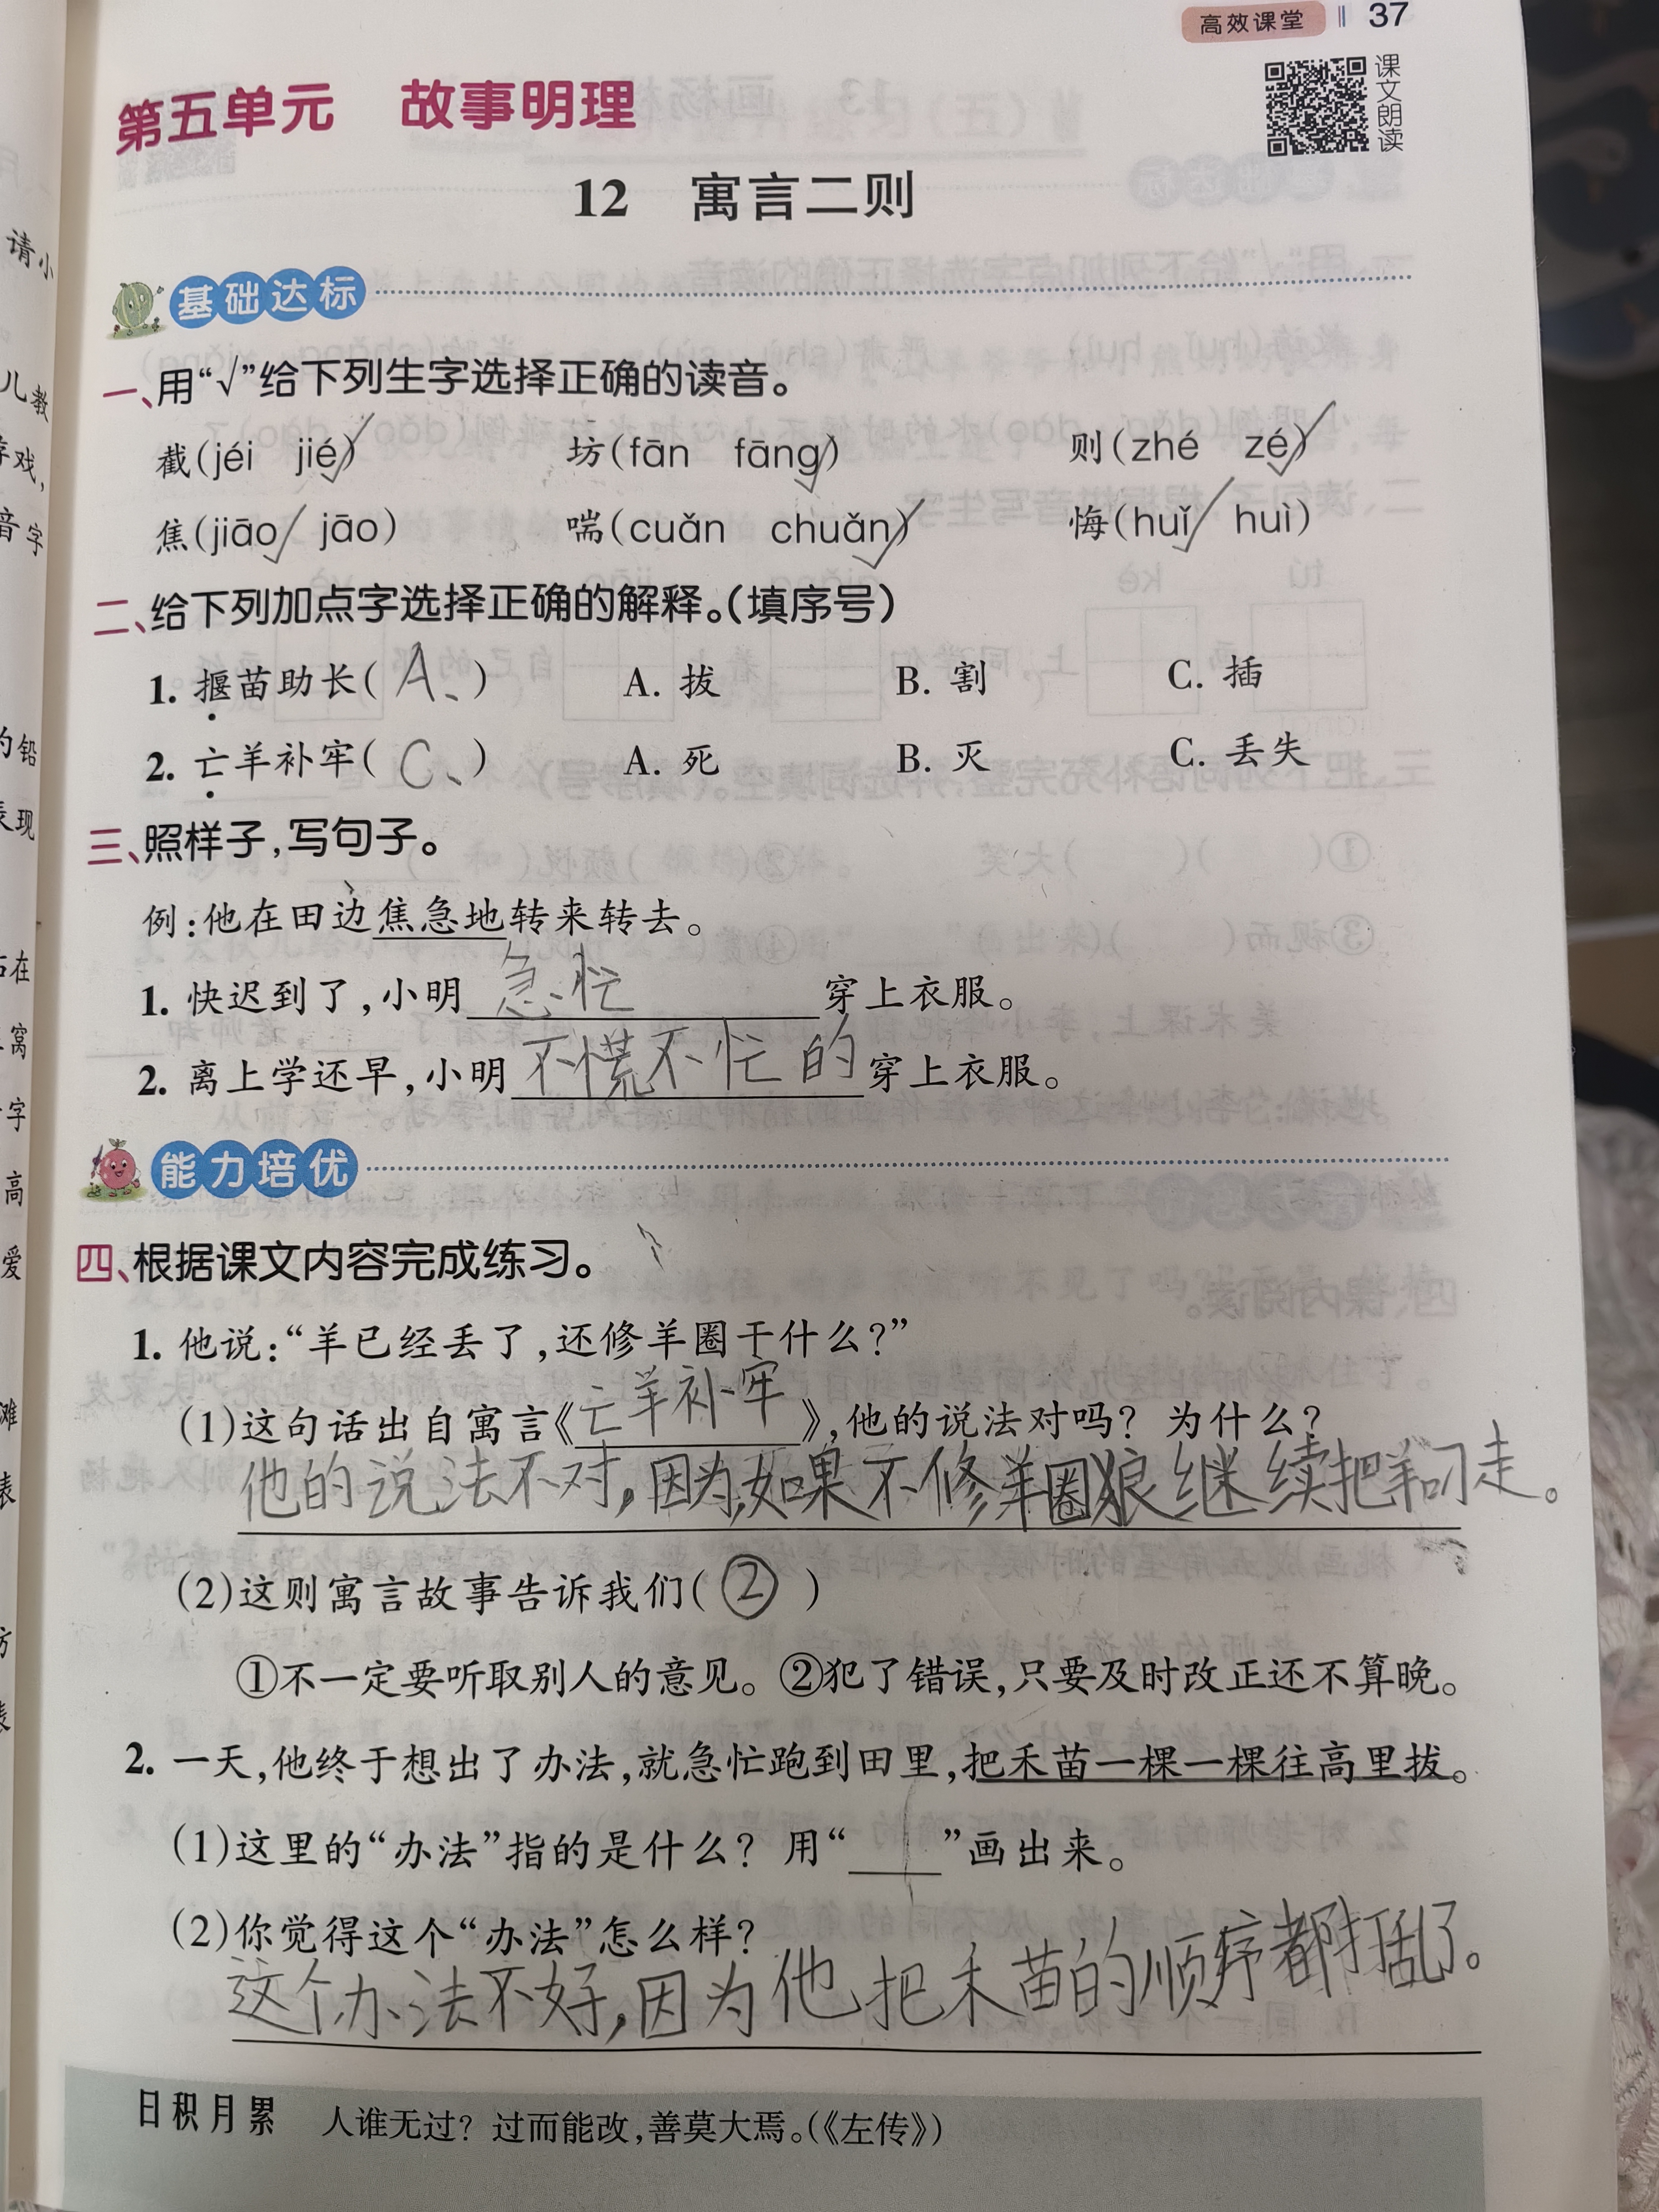 高效课堂 37
课文朗读
第五单元 故事明理
12 寓言二则
基础达标
一、用“√”给下列生字选择正确的读音。
截(jéi jié)√ 坊(fān fāng)√ 则(zhé zé)√
焦(jiāo√ jāo) 喘(cuǎn chuǎn)√ 悔(huǐ√ huì)
二、给下列加点字选择正确的解释。(填序号)
1. 揠苗助长(A、) A. 拔 B. 割 C. 插
2. 亡羊补牢(C、) A. 死 B. 灭 C. 丢失
三、照样子,写句子。
例:他在田边焦急地转来转去。
1. 快迟到了,小明急忙穿上衣服。
2. 离上学还早,小明不慌不忙的穿上衣服。
能力培优
四、根据课文内容完成练习。
1. 他说:“羊已经丢了,还修羊圈干什么?”
(1)这句话出自寓言《亡羊补牢》,他的说法对吗? 为什么?
他的说法不对,因为如果不修羊圈狼继续把羊叼走。
(2)这则寓言故事告诉我们(②)
①不一定要听取别人的意见。②犯了错误,只要及时改正还不算晚。
2. 一天,他终于想出了办法,就急忙跑到田里,把禾苗一棵一棵往高里拔。
(1)这里的“办法”指的是什么? 用“___”画出来。
(2)你觉得这个“办法”怎么样?
这个办法不好,因为他把禾苗的顺序都打乱了。
日积月累 人谁无过? 过而能改,善莫大焉。(《左传》)